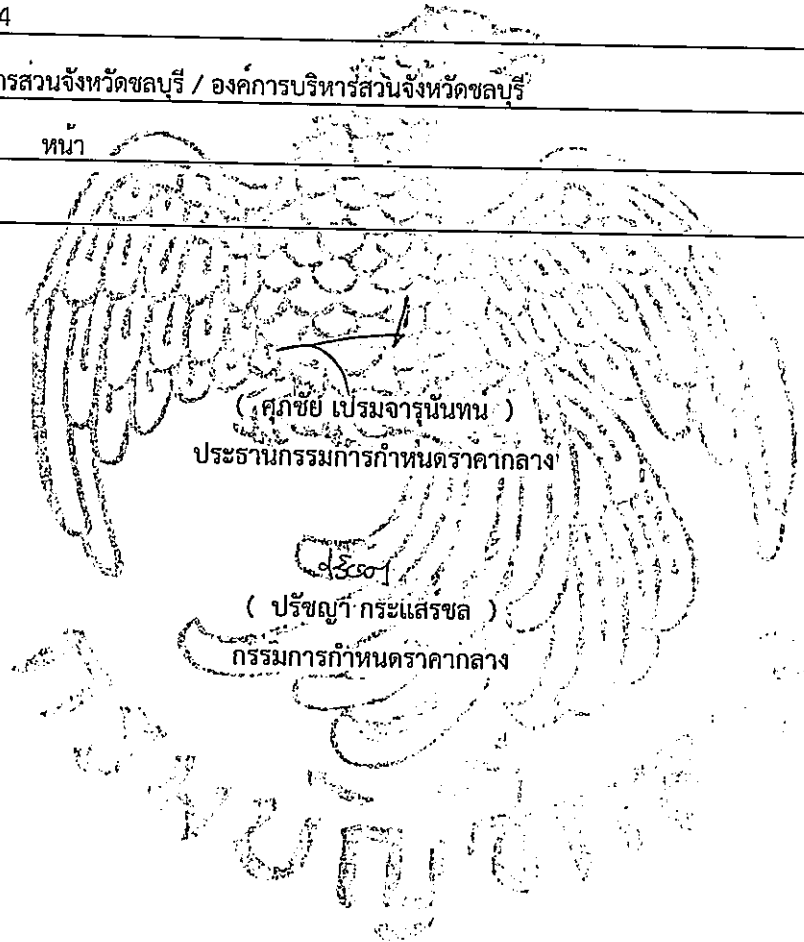 4
ารส่วนจังหวัดชลบุรี / องค์การบริหารส่วนจังหวัดชลบุรี
หน้า
( ศุภชัย เปรมจารุนันทน์ )
ประธานกรรมการกำหนดราคากลาง
( ปรัชญา กระแสร์ชล )
กรรมการกำหนดราคากลาง